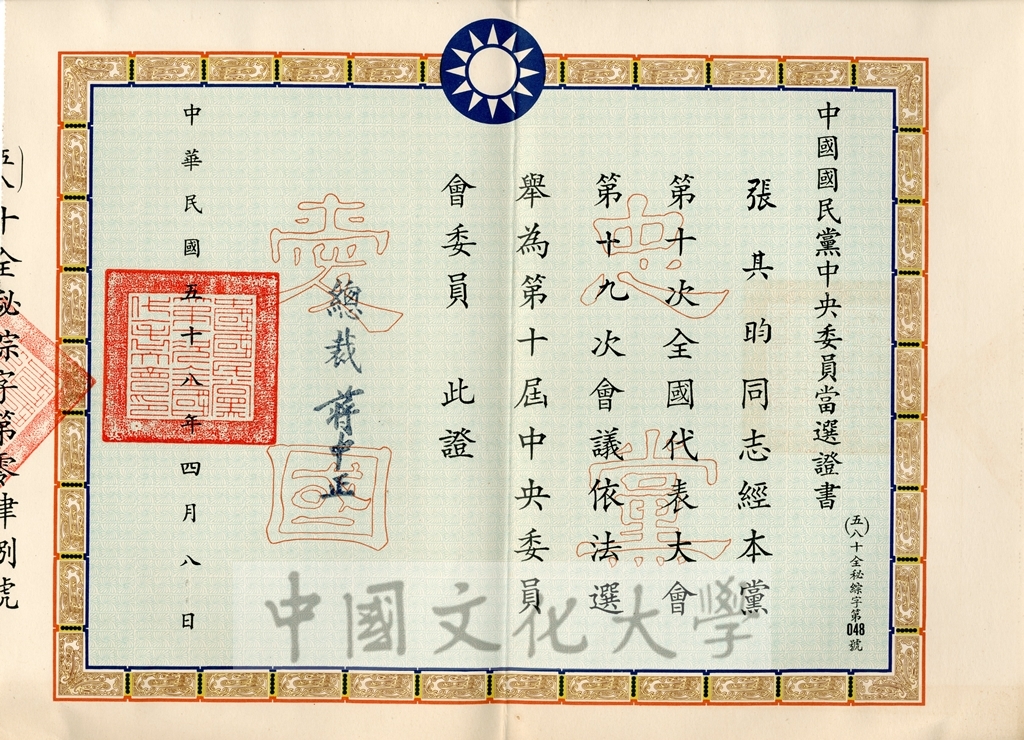 中國國民黨中央委員當選證書
(五八)十全秘綜字第048號
張其昀同志經本黨
第十次全國代表大會
第十九次會議依法選
舉為第十屆中央委員
會委員 此證
忠黨
愛國
總裁 蔣中正
中華民國五十八年四月八日
五八)十全秘綜字第零肆捌號
中國文化大學